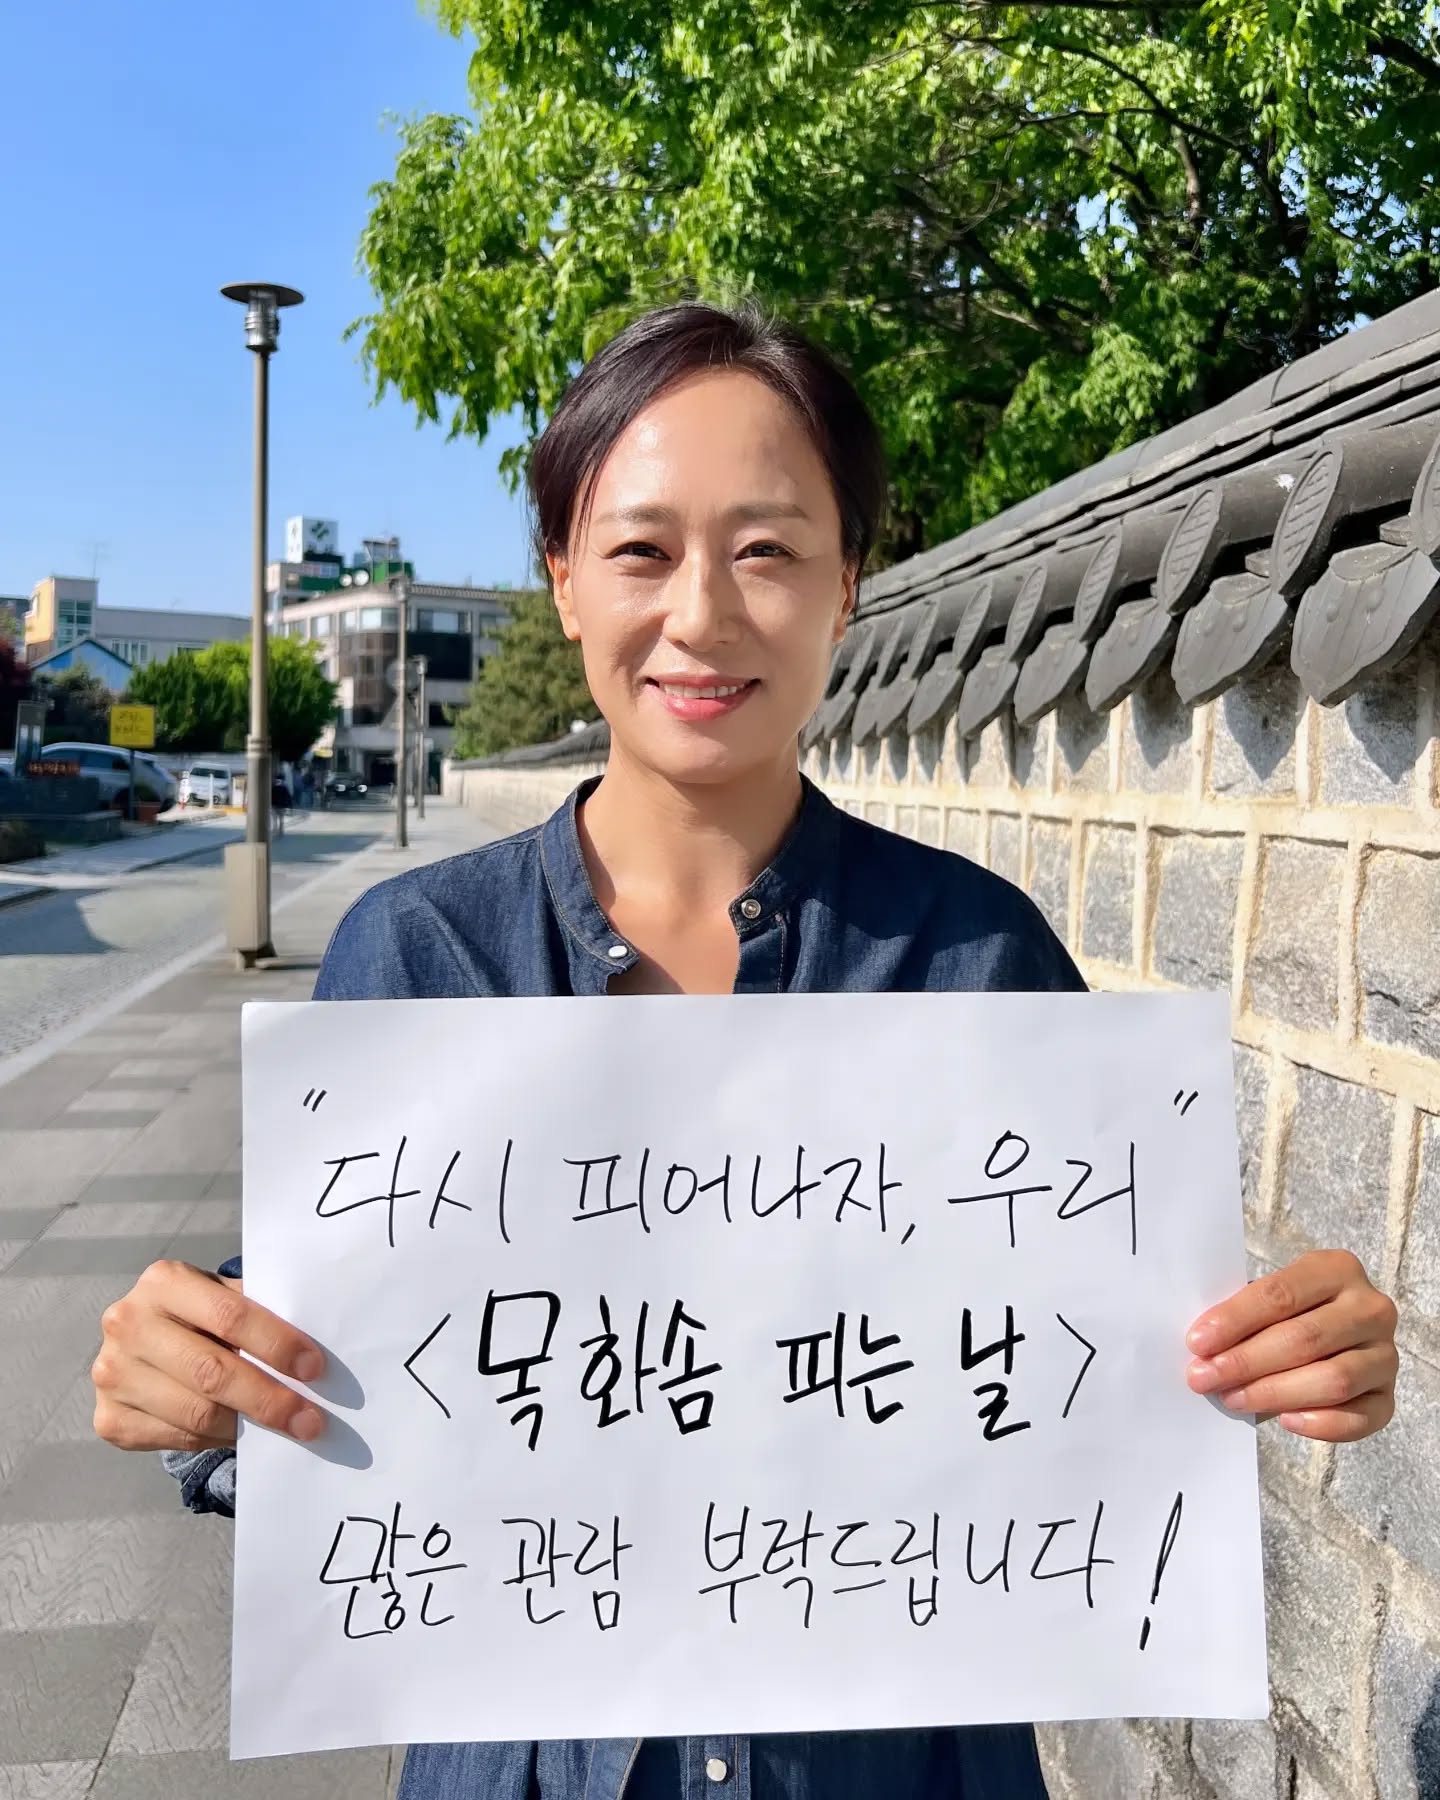 "다시 피어나자, 우리"
<목화솜 피는 날>
많은 관람 부탁드립니다!